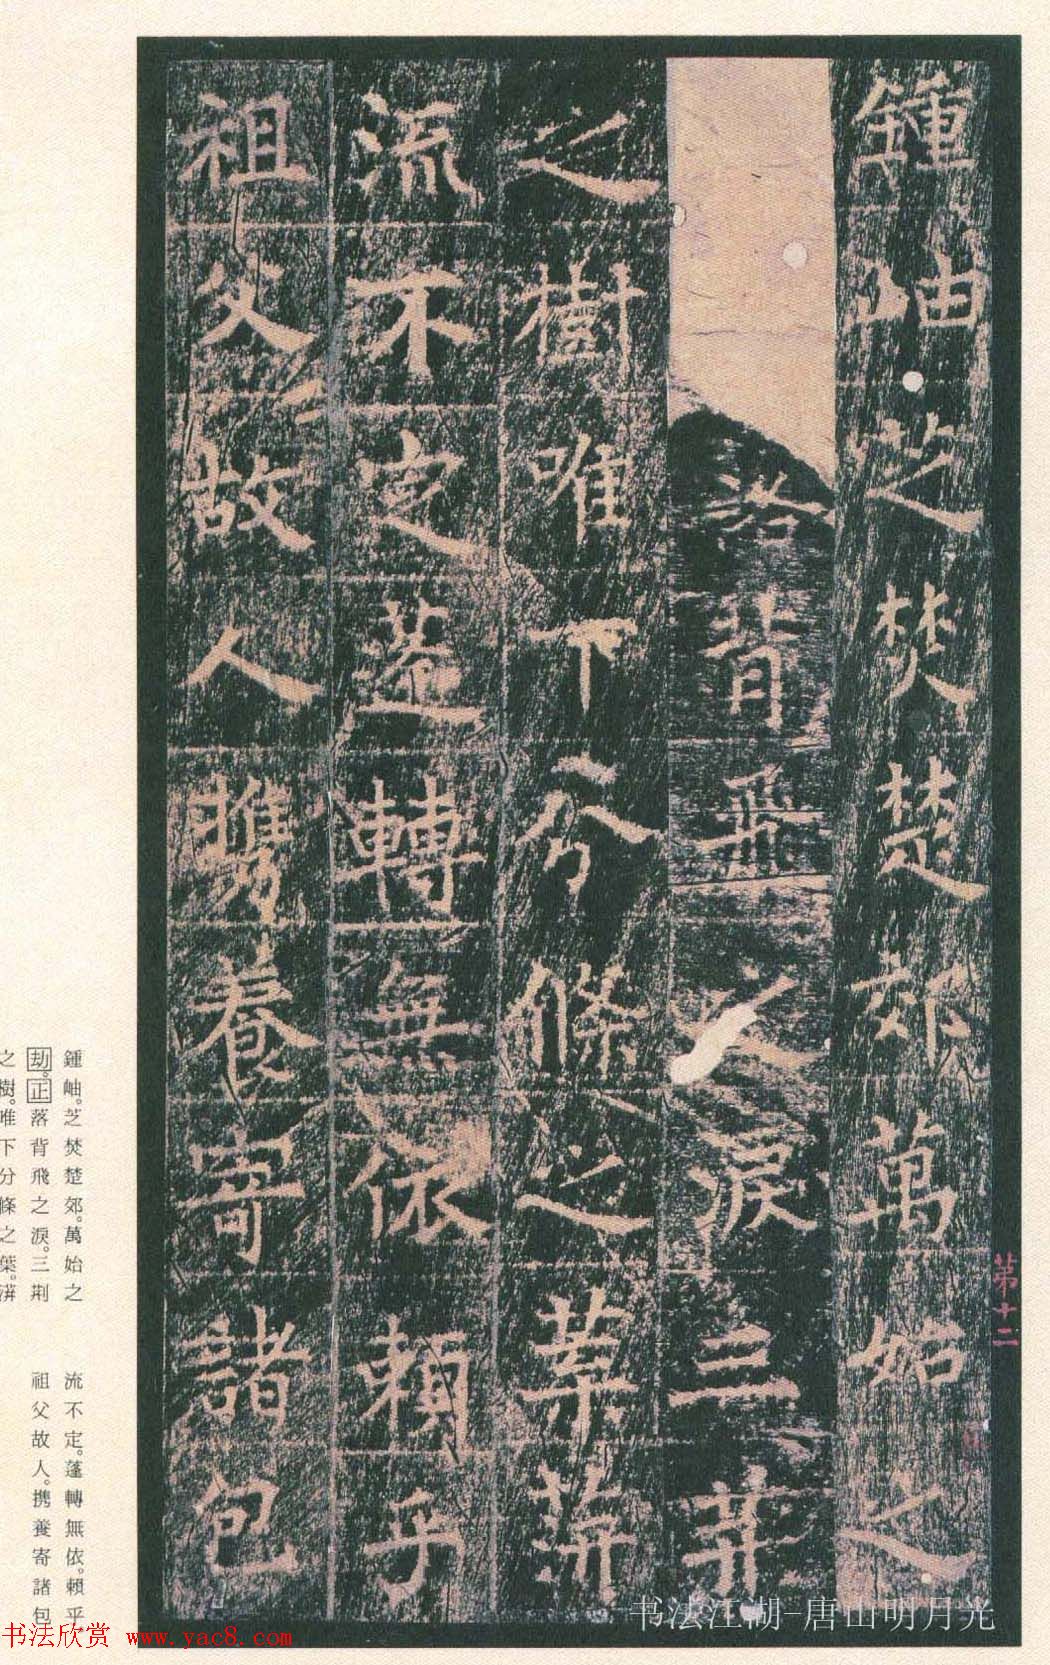 鍾岫芝焚楚郊萬始之
落背飛之淚三荆
之樹唯下分條之葉蓱
流不定蓬轉無依賴乎
祖父故人携養寄諸包
第十二
鍾岫。芝焚楚郊。萬始之
劫。正落背飛之淚。三荆
之樹。唯下分條之葉。蓱
流不定。蓬轉無依。賴乎
祖父故人。携養寄諸包
书法江湖-唐山明月光
书法欣赏 www.yac8.com